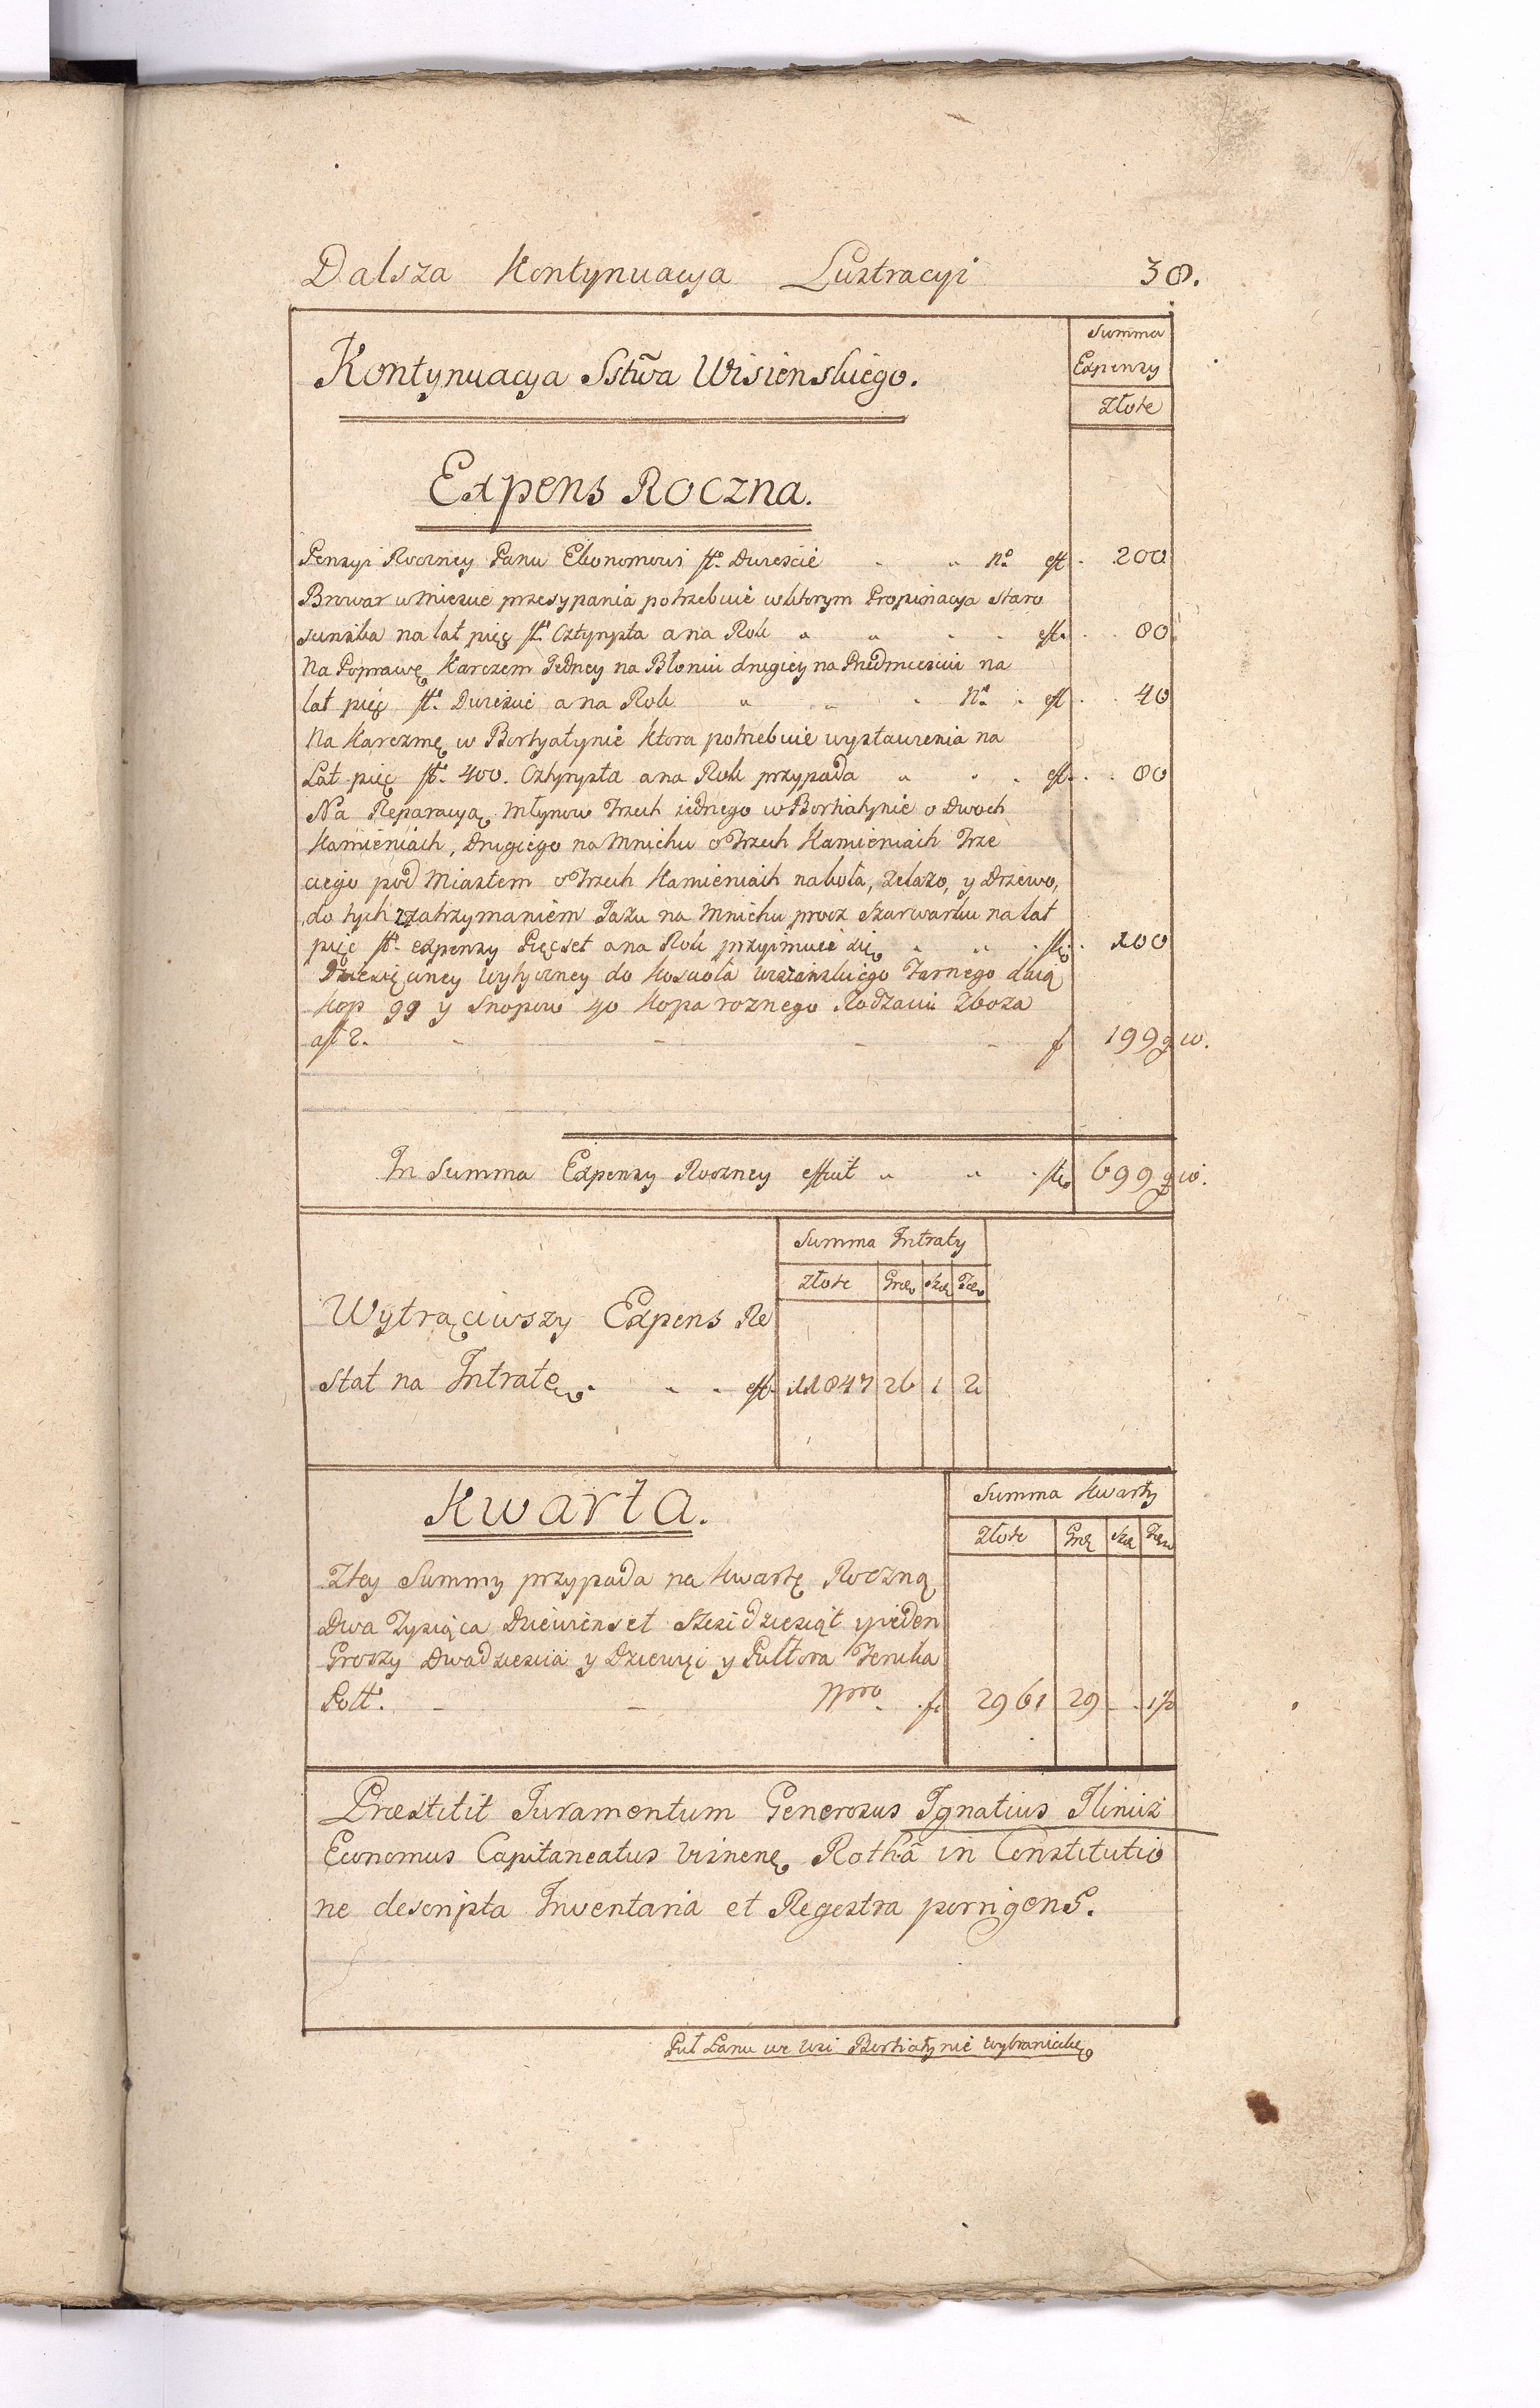 Dalsza Kontynuacya Lustracyi 38.
Kontynuacya Sstwa Wisienskiego.
Summa
Expensy
Złote
Expens Roczna.
Pensyi Roczney Panu Ekonomowi fl. Dwiescie " " No eff. 200
Browar w Miescie przesypania potrzebuie w ktorym Propinacya Staro
scinska na lat pięć fl. Cztyrysta a na Rok " " eff. 80
Na Poprawę Karczem Jedney na Błoniu drugiey na Przedmiesciu na
lat pięć fl. Dwiescie a na Rok " " No eff. 40
Na Karczmę w Bortyatynie ktora potrzebuie wystawienia na
Lat pięć fl. 400. Cztyrysta a na Rok przypada " eff. 80
Na Reparacyą Młynow Trzech iednego w Bortiatynie o Dwoch
Kamieniach, Drugiego na Mnichu o Trzech Kamieniach Trze
ciego pod Miastem o Trzech Kamieniach na koła, Zelazo, y Drzewo,
do tych z zatrzymaniem Jazu na Mnichu procz Szarwarku na lat
pięć fl. expensy Pięcset a na Rok przyimuie się " " fl. 100
Dziesięciney wytyczney do Koscioła Wiszinskiego Farnego daią
Kop 99 y Snopow 40 Kopa roznego Rodzaiu Zboza
a fl 2. f 199 g 10.
In Summa Expensy Roczney effiut " " fl. 699 g 10.
Summa Intraty
Złote Gro Sze
Wytrąciwszy Expens Re
stat na Intratę. " " eff. 11847 26 1 2
Kwarta.
Summa Kwarty
Złote Gro Sze
Z tey Summy przypada na Kwartę Roczną
Dwa Tysiąca Dziewienset Szesidziesiąt y ieden
Groszy Dwadziescia y Dziewięć y Pułtora Fenika
Poll. Nro f 2961 29 - 1½
Præstitit Juramentum Generosus Ignatius Ilinicz
Economus Capitaneatus Visnen Rothâ in Constitutio
ne descripta Inventaria et Regestra porrigens.
Puł Łanu we Wsi Bortiatynie Wybraniecke